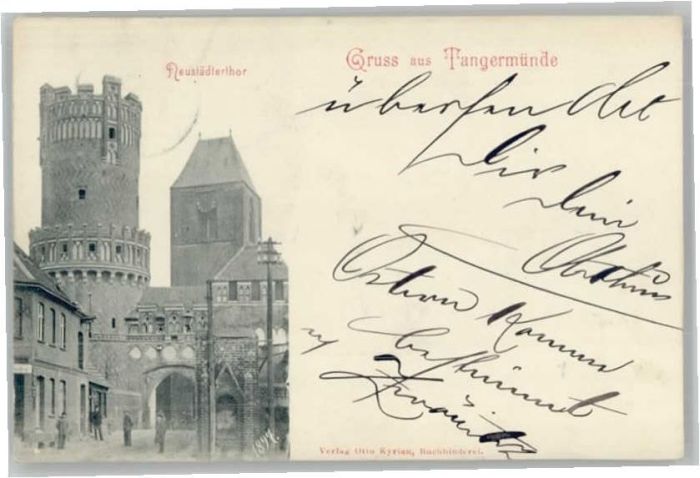 Neustädterthor
Gruss aus Tangermünde
übersendet
Dir
Dein
Ostern kommen
bestimmt
Verlag Otto Kyrian, Buchbinderei.